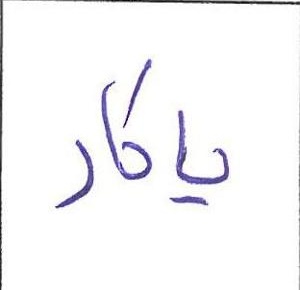 یاکار